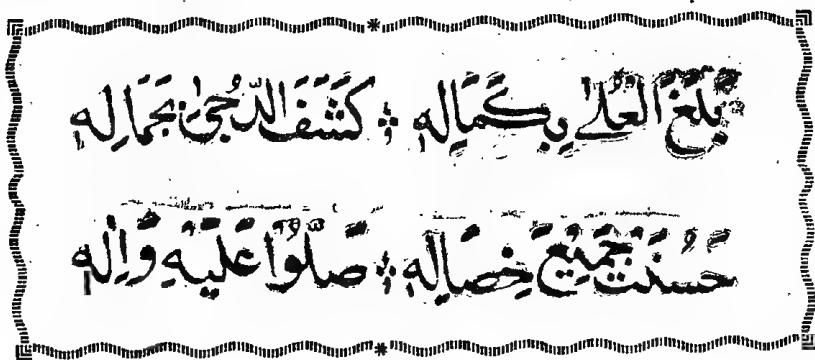 بَلَغَ الْعُلٰے بِكَمَالِهٖ ؞ كَشَفَ الدُّجٰی بِجَمَالِهٖ
حَسُنَتْ جَمِيْعُ خِصَالِهٖ ؞ صَلُّوْا عَلَيْهِ وَاٰلِهٖ